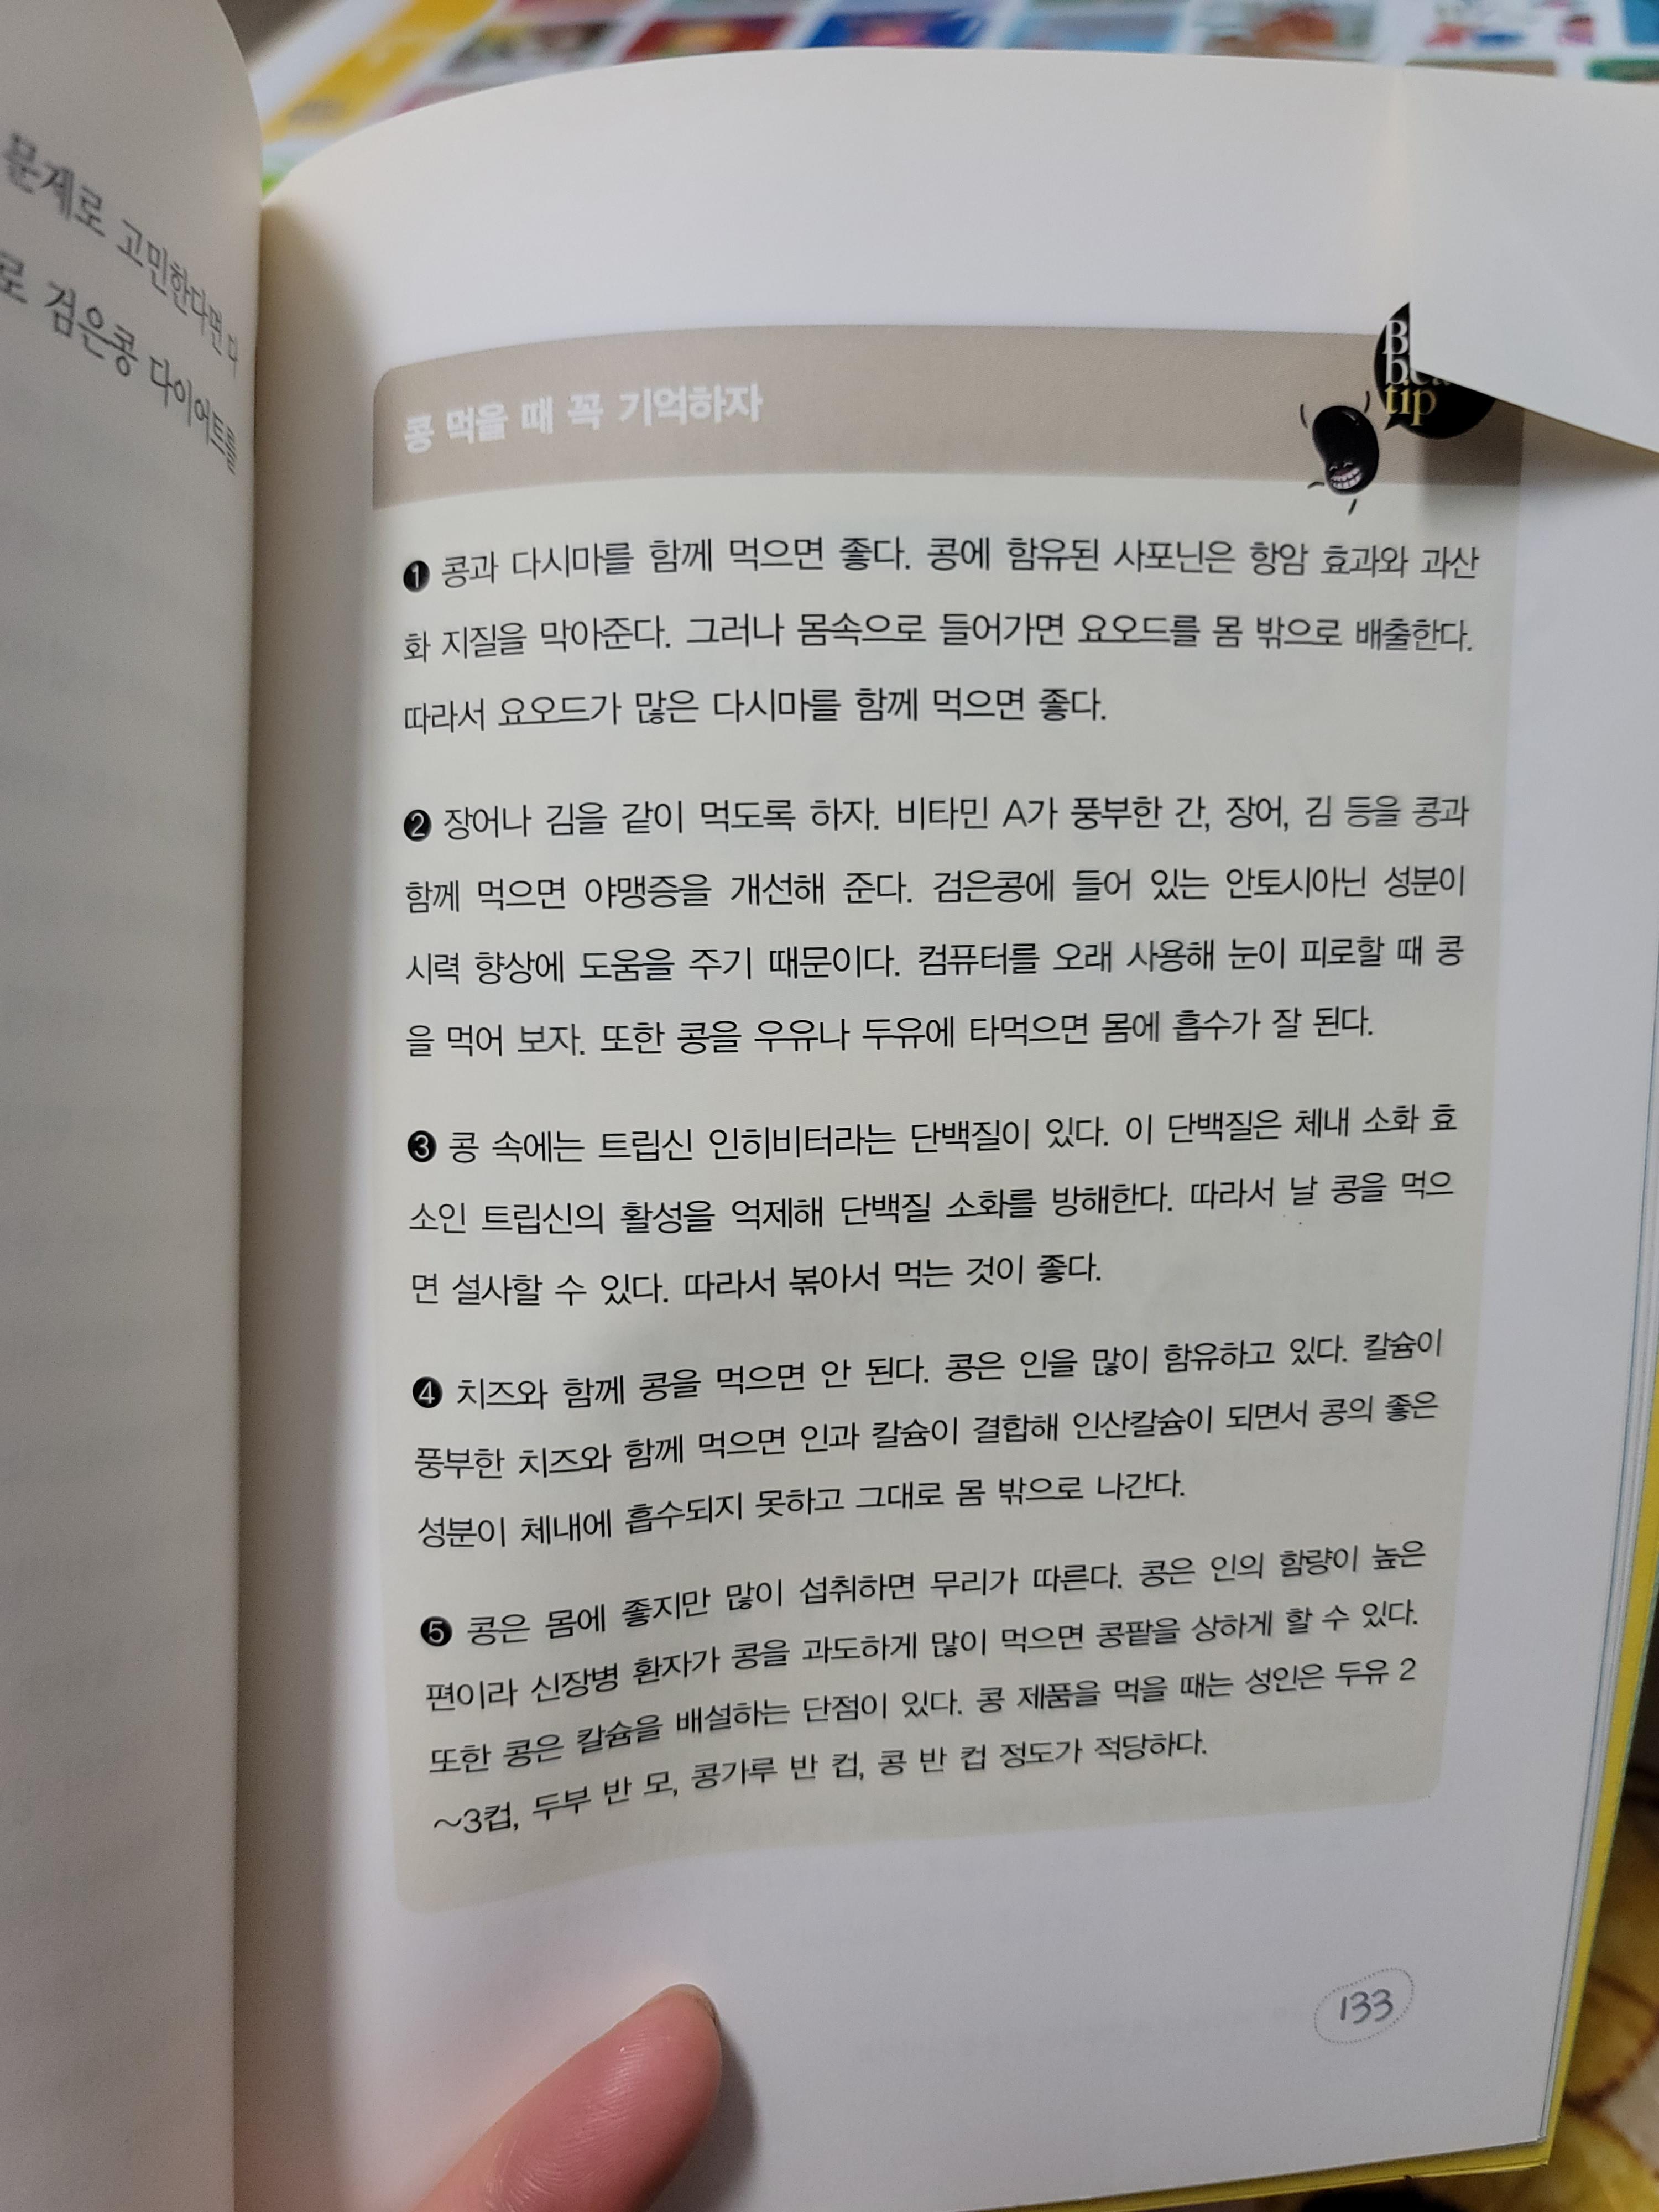 문제로 고민한다면 다
로 검은콩 다이어트를
콩 먹을 때 꼭 기억하자
tip
❶ 콩과 다시마를 함께 먹으면 좋다. 콩에 함유된 사포닌은 항암 효과와 과산
화 지질을 막아준다. 그러나 몸속으로 들어가면 요오드를 몸 밖으로 배출한다.
따라서 요오드가 많은 다시마를 함께 먹으면 좋다.
❷ 장어나 김을 같이 먹도록 하자. 비타민 A가 풍부한 간, 장어, 김 등을 콩과
함께 먹으면 야맹증을 개선해 준다. 검은콩에 들어 있는 안토시아닌 성분이
시력 향상에 도움을 주기 때문이다. 컴퓨터를 오래 사용해 눈이 피로할 때 콩
을 먹어 보자. 또한 콩을 우유나 두유에 타먹으면 몸에 흡수가 잘 된다.
❸ 콩 속에는 트립신 인히비터라는 단백질이 있다. 이 단백질은 체내 소화 효
소인 트립신의 활성을 억제해 단백질 소화를 방해한다. 따라서 날 콩을 먹으
면 설사할 수 있다. 따라서 볶아서 먹는 것이 좋다.
❹ 치즈와 함께 콩을 먹으면 안 된다. 콩은 인을 많이 함유하고 있다. 칼슘이
풍부한 치즈와 함께 먹으면 인과 칼슘이 결합해 인산칼슘이 되면서 콩의 좋은
성분이 체내에 흡수되지 못하고 그대로 몸 밖으로 나간다.
❺ 콩은 몸에 좋지만 많이 섭취하면 무리가 따른다. 콩은 인의 함량이 높은
편이라 신장병 환자가 콩을 과도하게 많이 먹으면 콩팥을 상하게 할 수 있다.
또한 콩은 칼슘을 배설하는 단점이 있다. 콩 제품을 먹을 때는 성인은 두유 2
~3컵, 두부 반 모, 콩가루 반 컵, 콩 반 컵 정도가 적당하다.
133